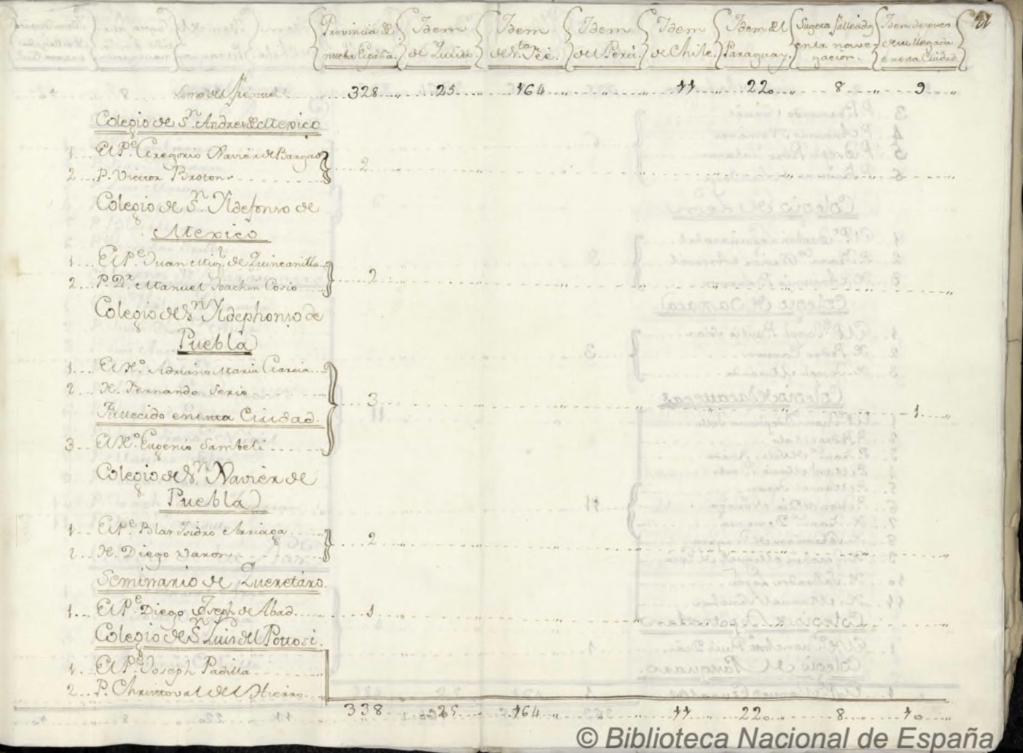 Provincia de nueva España. Idem de Quito. Idem de Sta. Feé. Idem del Perú. Idem de Chile. Idem del Paraguay. Sugetos fallecidos en la navegacion. Idem despues de su llegada à esta Ciudad 21
Suma del frente 328 25 164 11 220 8 9
Colegio de Sn. Andres de Mexico
1 El Pe. Gregorio Xavier de Bargas
2 P. Victor Broton 2
Colegio de Sn. Yldefonso de
Mexico
1 El Pe. Juan Migl. de Quincanilla
2 P. Dr. Manuel Joachin Cosio 2
Colegio de Sn. Yldephonso de
Puebla
1 El Ho. Adriano Maria Garcia
2 H. Fernando Serio 3
Fallecido en esta Ciudad 1
3 El Ho. Eugenio Sambeli
Colegio de Sn. Xavier de
Puebla
1 El Pe. Blas Isidro Arriaga 2
2 H. Diego Varon
Seminario de Queretaro.
1 El Pe. Diego Joseph de Abad 1
Colegio de Sn. Luis del Pottosi.
1 El Pe. Joseph Padilla
2 P. Christoval del Hierro
338 25 164 11 220 8 10
© Biblioteca Nacional de España